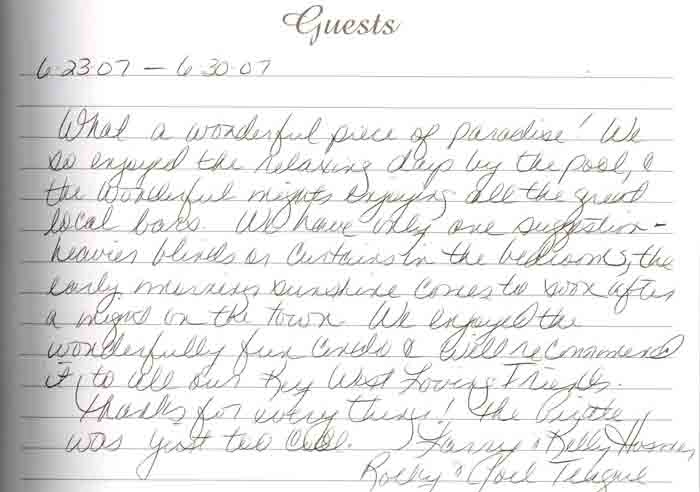 Guests
6-23-07 - 6-30-07
What a wonderful piece of paradise! We
so enjoyed the relaxing days by the pool, &
the wonderful nights enjoying all the great
local bars. We have only one suggestion -
heavier blinds or curtains in the bedrooms, the
early morning sunshine comes to soon after
a night on the town. We enjoyed the
wonderfully fun condo & will recommend
it, to all our Key West Loving Friends.
Thanks for every thing! The Pirate
was just too cool. Larry & Kelly
Rocky & Teague